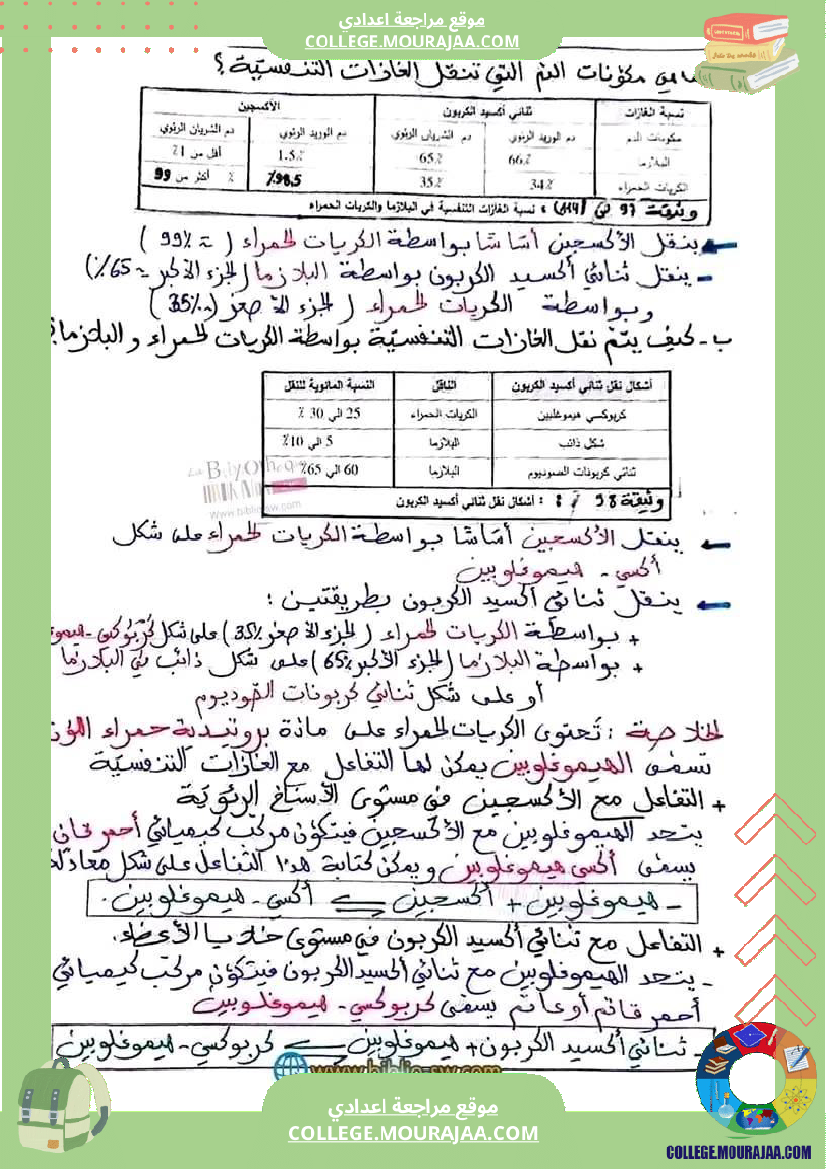 موقع مراجعة اعدادي
COLLEGE.MOURAJAA.COM
ما هي مكوّنات الدم التي تنقل الغازات التنفسيّة ؟
نسبة الغازات ثنائي أكسيد الكربون الأكسجين
مكونات الدم دم الوريد الرئوي دم الشريان الرئوي دم الوريد الرئوي دم الشريان الرئوي
البلازما 66٪ 65٪ 1.5٪ أقل من 1٪
الكريات الحمراء 34٪ 35٪ 98.5٪ أكثر من 99 ٪
وثيقة 97 : نسبة الغازات التنفسية في البلازما والكريات الحمراء
ينقل الأكسجين أساسًا بواسطة الكريات الحمراء ( ≈ 99٪ )
- ينقل ثنائي أكسيد الكربون بواسطة البلازما (الجزء الأكبر ≈ 65٪)
وبواسطة الكريات الحمراء ( الجزء الأصغر (≈ 35٪)
ب - كيف يتمّ نقل الغازات التنفسيّة بواسطة الكريات الحمراء والبلازما
أشكال نقل ثنائي أكسيد الكربون الناقل النسبة المائوية للنقل
كربوكسي هيموغلبين الكريات الحمراء 25 الى 30 ٪
شكل ذائب البلازما 5 الى 10٪
ثنائي كربونات الصوديوم البلازما 60 الى 65٪
وثيقة 98 : أشكال نقل ثنائي أكسيد الكربون
ينقل الأكسجين أساسًا بواسطة الكريات الحمراء على شكل
أكسي - هيموغلوبين
ينقل ثنائي أكسيد الكربون بطريقتين :
+ بواسطة الكريات الحمراء ( الجزء الأصغر 35٪ ) على شكل كربوكسي - هيمو
+ بواسطة البلازما (الجزء الأكبر 65٪) على شكل ذائب في البلازما
أو على شكل ثنائي كربونات الصوديوم
الخلاصة : تحتوي الكريات الحمراء على مادة بروتيدية حمراء اللون
تسمّى الهيموغلوبين يمكن لها التفاعل مع الغازات التنفسيّة
+ التفاعل مع الأكسجين في مستوى الأسناخ الرئويّة
يتحد الهيموغلوبين مع الأكسجين فيتكوّن مركّب كيميائي أحمر قاني
يسمّى أكسي هيموغلوبين ويمكن كتابة هذا التفاعل على شكل معادلة
- هيموغلوبين + أكسجين ⇌ أكسي - هيموغلوبين .
+ التفاعل مع ثنائي أكسيد الكربون في مستوى خلايا الأعضاء.
- يتحد الهيموغلوبين مع ثنائي أكسيد الكربون فيتكوّن مركّب كيميائي
أحمر قاتم أو غاتم يسمّى كربوكسي - هيموغلوبين
- ثنائي أكسيد الكربون + هيموغلوبين ⇌ كربوكسي - هيموغلوبين
www.biblio-sw.com
موقع مراجعة اعدادي
COLLEGE.MOURAJAA.COM
COLLEGE.MOURAJAA.COM